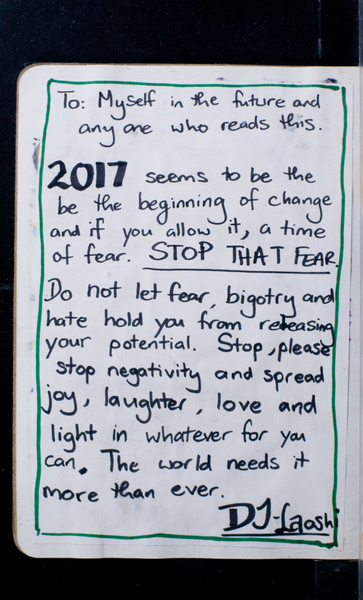 To: Myself in the future and
any one who reads this.
2017 seems to be the
be the beginning of change
and if you allow it, a time
of fear. STOP THAT FEAR.
Do not let fear, bigotry and
hate hold you from releasing
your potential. Stop, please
stop negativity and spread
joy, laughter, love and
light in whatever for you
can. The world needs it
more than ever.
DJ-Laoshi